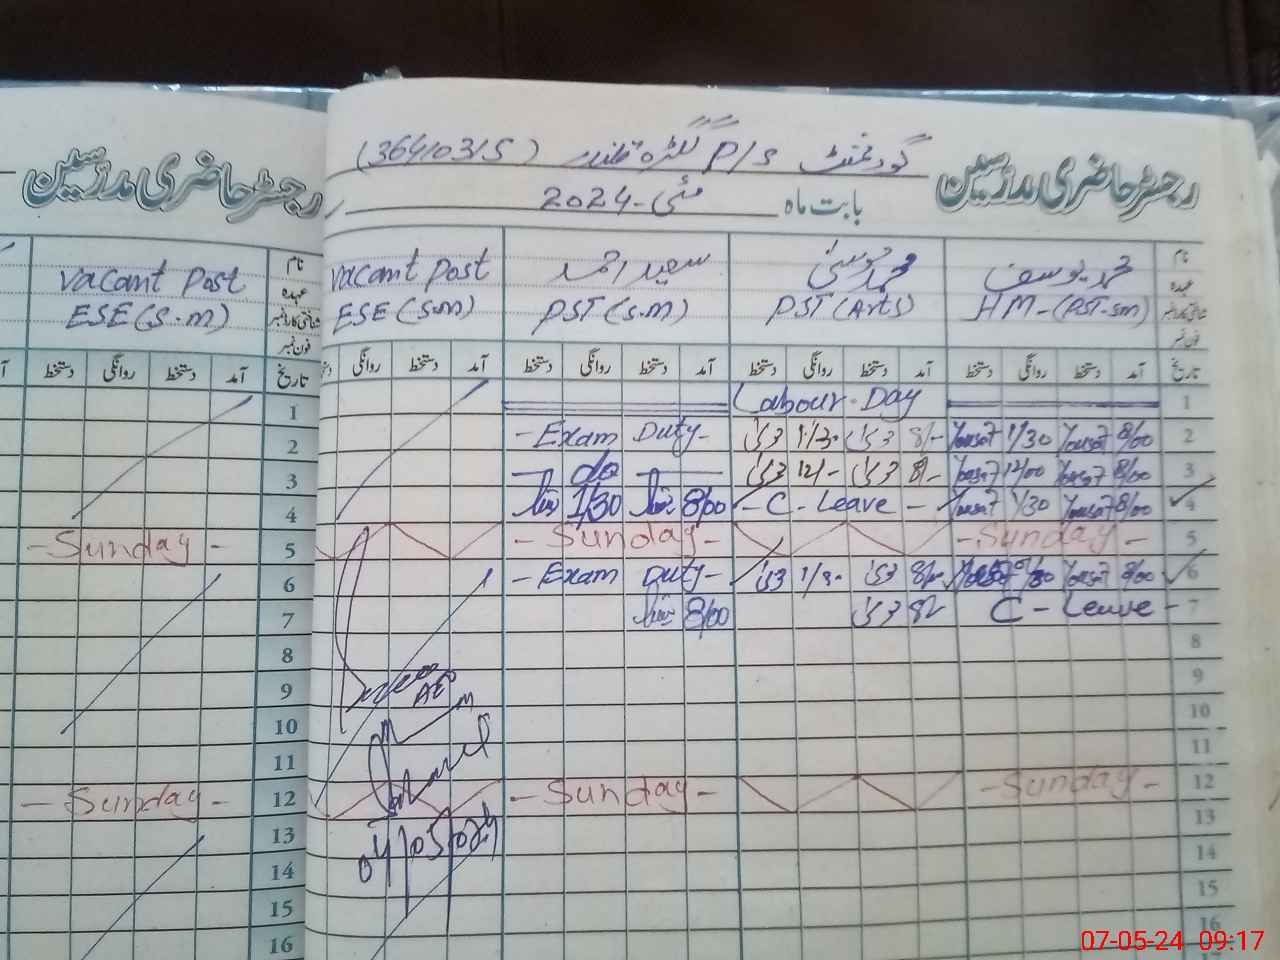 گورنمنٹ P/S ککڑہ قلندر (36410315)
رجسٹر حاضری مدرسین
رجسٹر حاضری مدرسین
بابت ماہ مئی-2024
نام محمد یوسف محمد موسیٰ سعید احمد Vacant Post
عہدہ HM-(PST-SM) PST(Arts) PST(S.M) ESE(S.M)
شناختی کارڈ نمبر
فون نمبر
نام Vacant Post
عہدہ ESE(S.M)
شناختی کارڈ نمبر
فون نمبر
تاریخ آمد دستخط روانگی دستخط آمد دستخط روانگی دستخط آمد دستخط روانگی دستخط آمد دستخط روانگی
تاریخ آمد دستخط روانگی دستخط آمد
1 Labour Day 1
2 -Exam Duty- 1/30 8/- Yousaf 1/30 Yousaf 8/00 2
3 — do — 12/- 8/- Yousaf 12/00 Yousaf 8/00 3
4 1/30 8/00 - C - Leave - Yousaf 1/30 Yousaf 8/00 4
-Sunday- 5 -Sunday- -Sunday- 5
6 -Exam Duty- 1/30 8/00 Yousaf 8/00 6
7 8/00 8/- C - Leave - 7
8 8
9 AEO 9
10 10
11 11
-Sunday- 12 -Sunday- -Sunday- 12
13 13
14 04/05/024 14
15 15
16 16
07-05-24 09:17